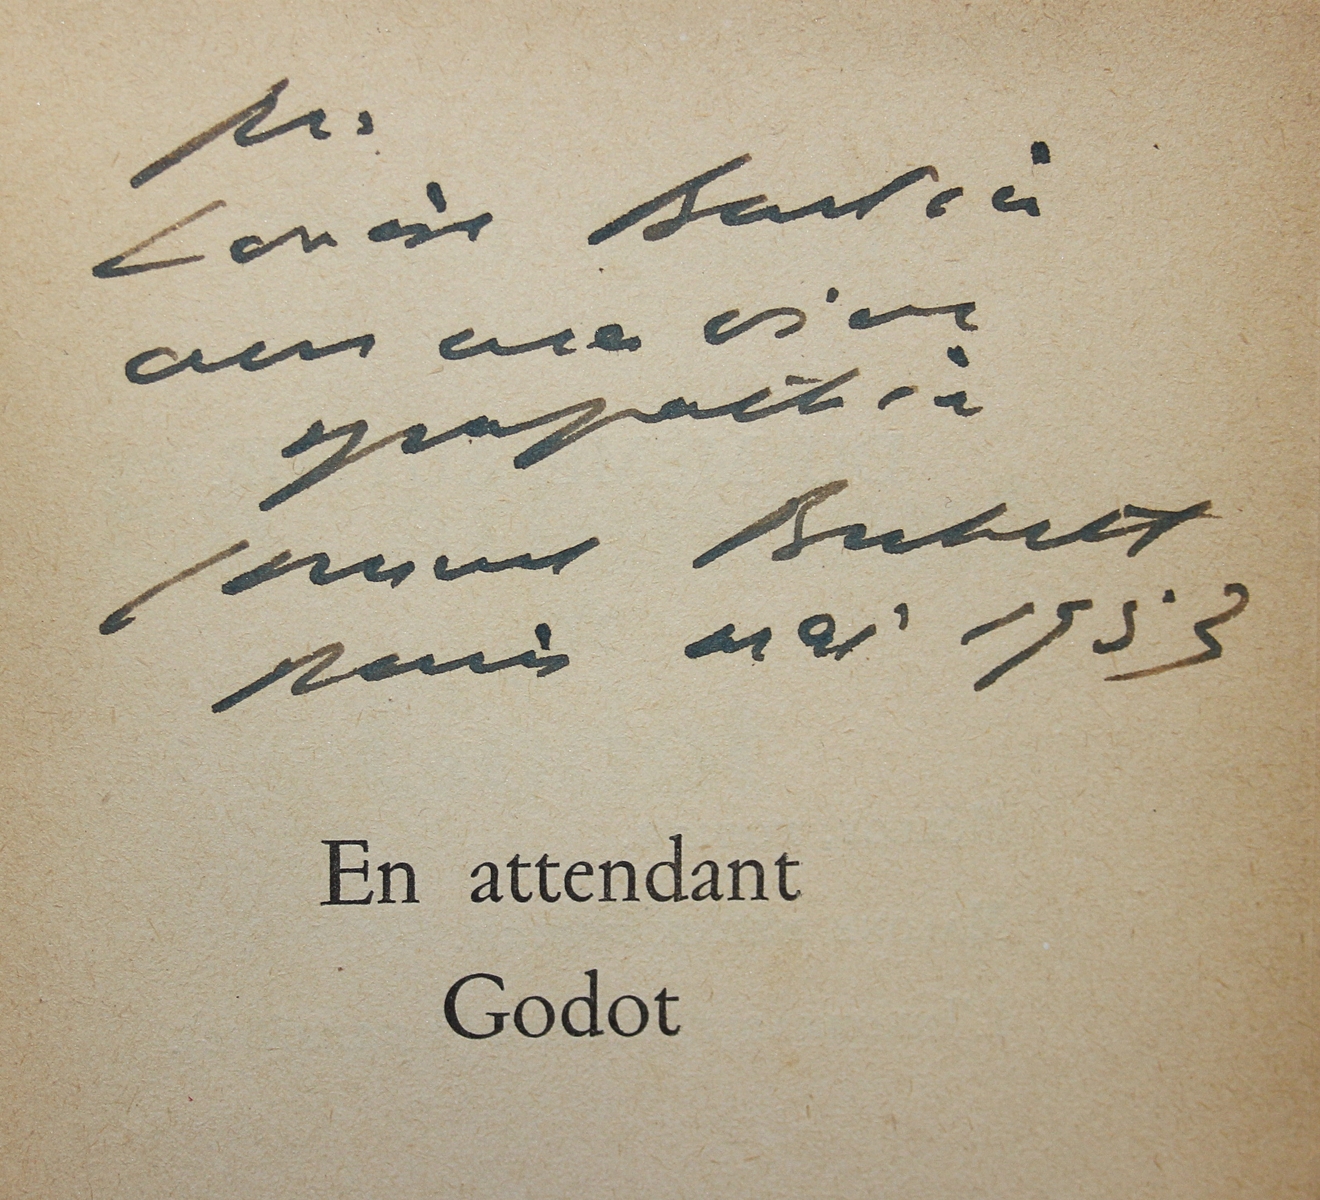 Louis Barbier
avec ma vive
sympathie
Samuel Beckett
Paris mai 1953
En attendant
Godot